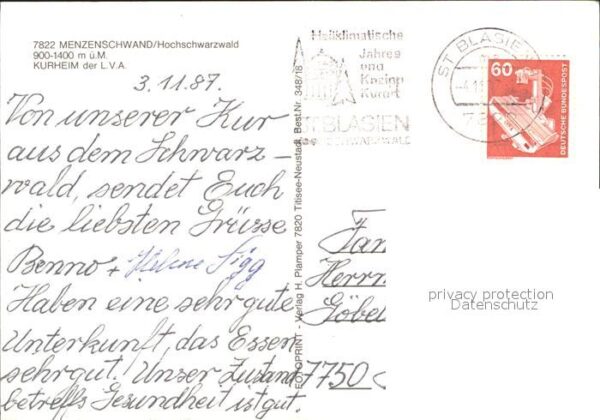 7822 MENZENSCHWAND/Hochschwarzwald
900-1400 m ü.M.
KURHEIM der L.V.A.
3.11.87.
Von unserer Kur
aus dem Schwarz-
wald, sendet Euch
die liebsten Grüsse
Benno + Helene Sigg
Haben eine sehr gute
Unterkunft, das Essen
sehr gut. Unser Zustand
betreffs Gesundheit ist gut.
FOTOPRINT - Verlag H. Plamper 7820 Titisee-Neustadt, Best.Nr. 348/16
Heilklimatische
Jahres
und
Kneipp
Kurort
ST BLASIEN
SCHWARZWALD
ST BLASIE
-4.11
60
DEUTSCHE BUNDESPOST
Fam
Herrn
Göbel
7750
privacy protection
Datenschutz